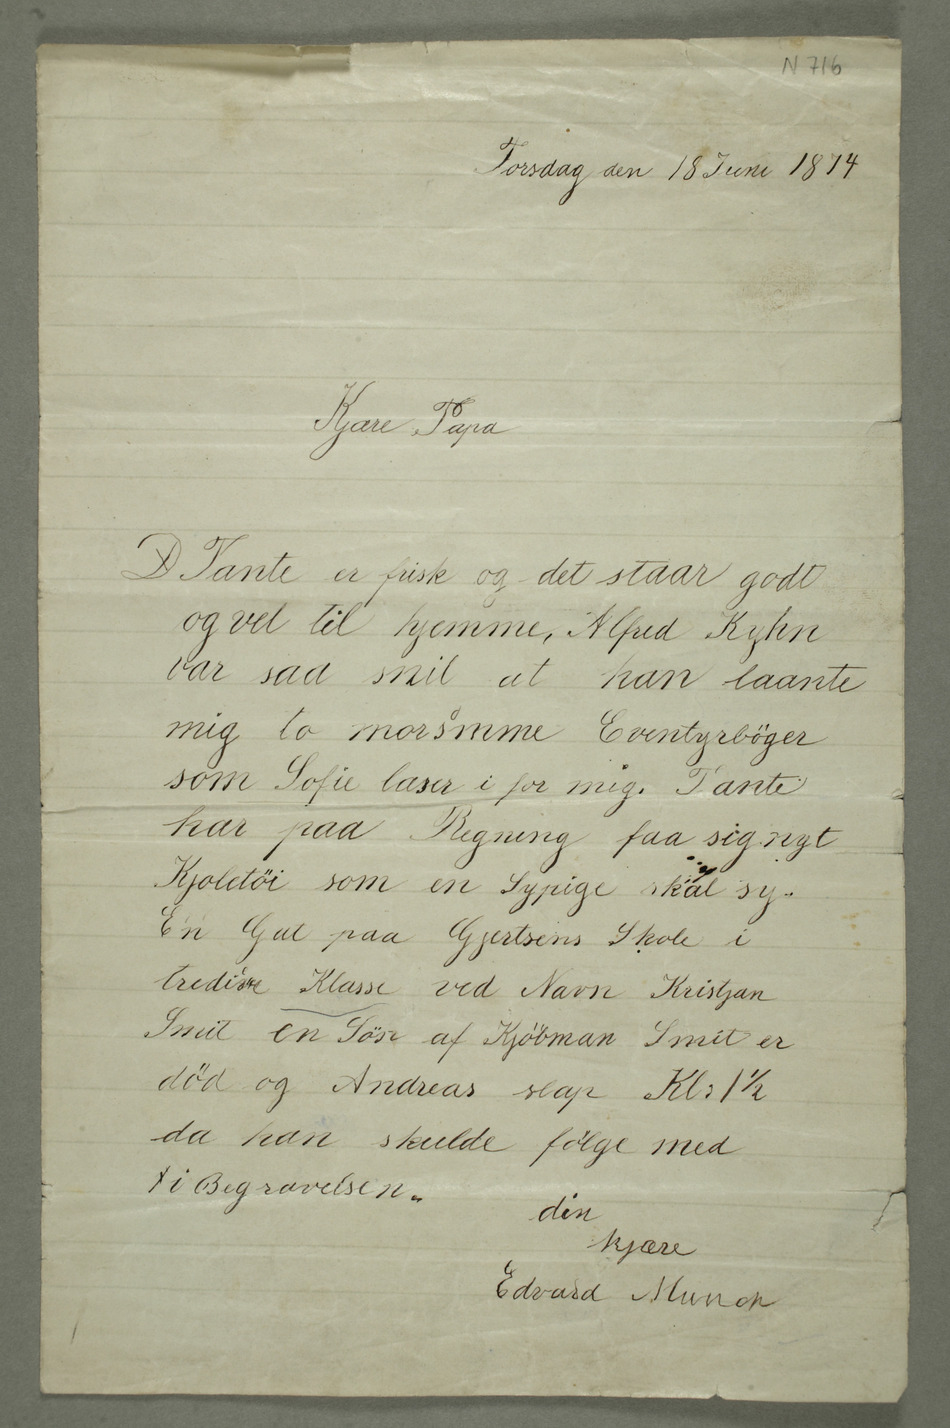 N 716
Torsdag den 18 Juni 1874
Kjære Papa
D Tante er frisk og det staar godt
og vel til hjemme, Alfred Kyhn
var saa snil at han laante
mig to morsomme Eventyrböger
som Sofie læser i for mig. Tante
har paa Regning faa sig nyt
Kjoletöi som en Sypige skal sy.
En Gut paa Gjertsens Skole i
Klasse ved Navn Kristjan
Smit en Sön af Kjöbman Smit er
död og Andreas slap Kl: 1 1/2
da han skulde fölge med
i Begravelsen.
din
kjære
Edvard Munch